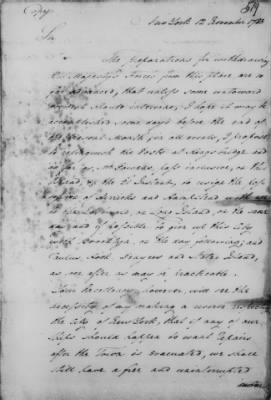 Copy
New York 12 November 1783
Sir
The preparations for withdrawing
His Majesty's Forces from this place are in
such advance, that unless some untoward
Events should intervene, I hope it may be
accomplished some days before the end of
the present month for all events, I propose
to relinquish the Posts at Kings Bridge and
as far as McGowans, pass inclusive, on this
Island, on the 21 Instant, to resign the
of Hericks and Hampstead with all
to Eastward, on Long Island, on the same
day and if possible to give up this City
with Brooklyn, on the day following, and
Paulus Hook, Denyces and Staten Island,
as soon after as may be practicable.
Your Excellency however, will see the
necessity of my making a reserve respecting
the City of New York, that if any of our
Ships should happen to want repairs
after the Town is evacuated, we shall
still have a free and uninterrupted